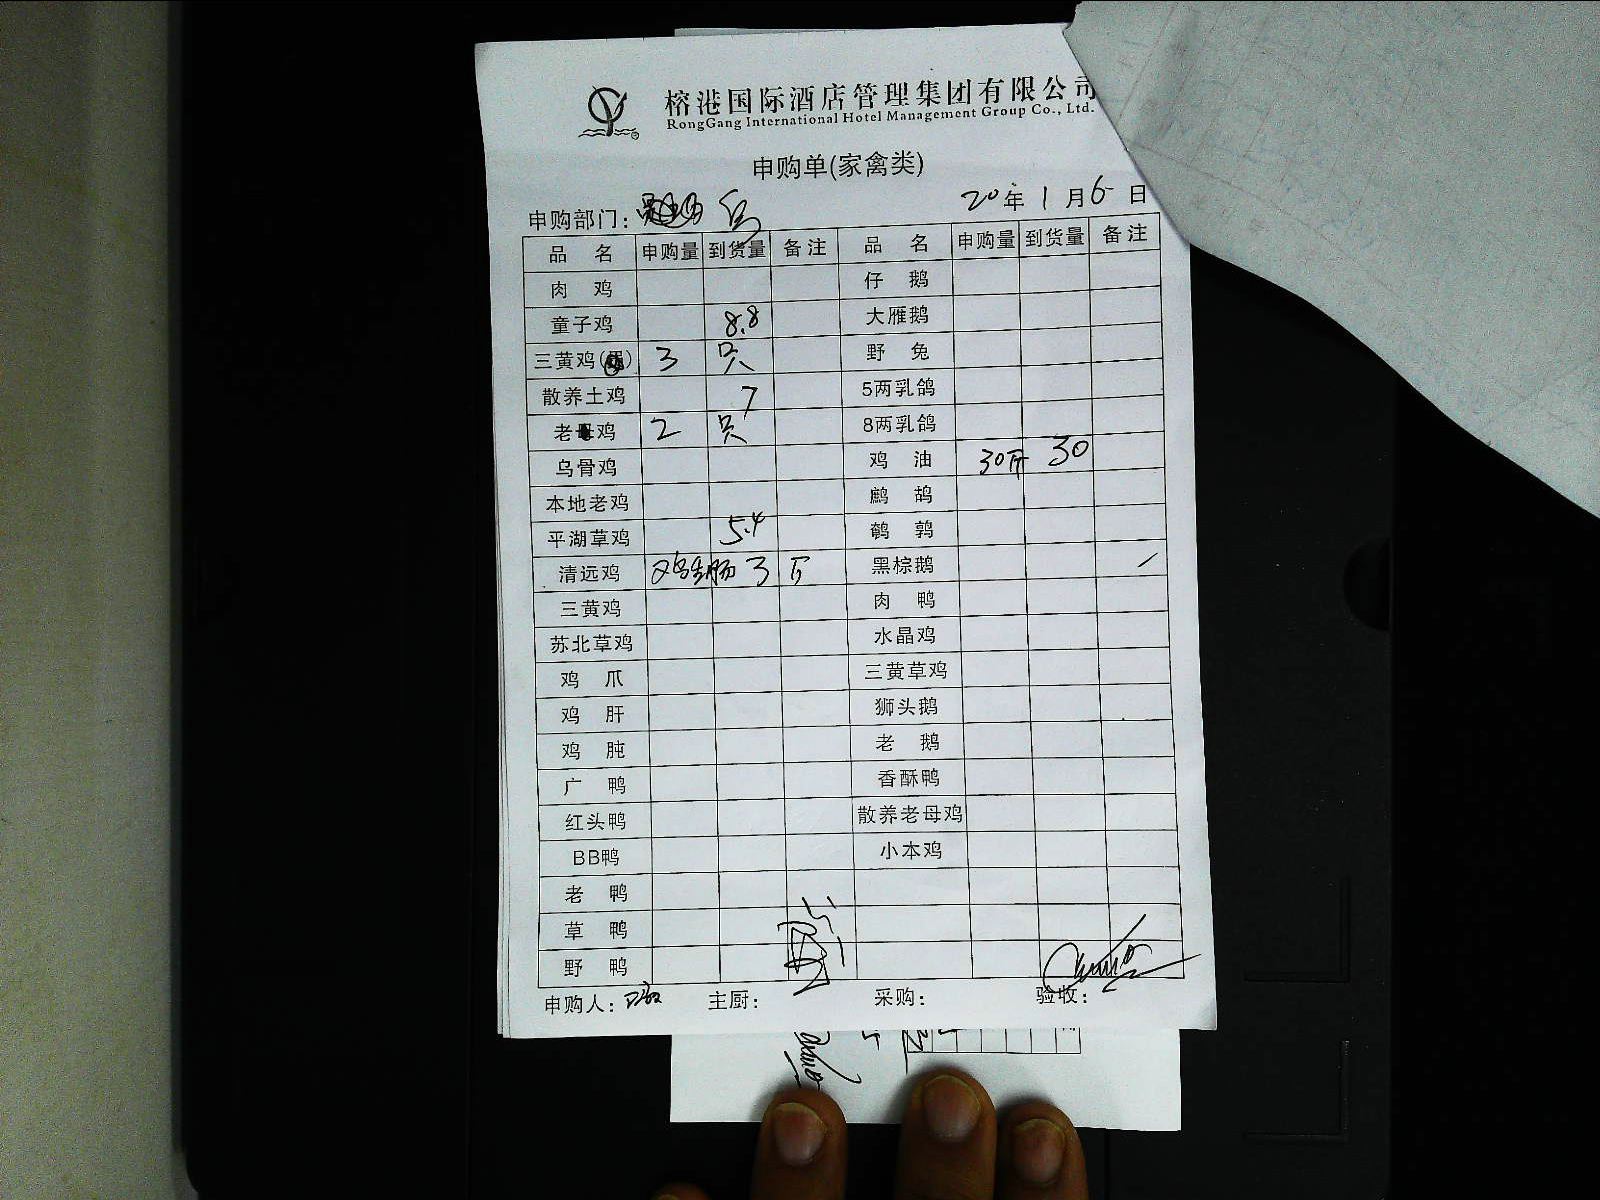 榕港国际酒店管理集团有限公司
RongGang International Hotel Management Group Co., Ltd.
申购单(家禽类)
申购部门: 20年1月6日
品名 申购量 到货量 备注 品名 申购量 到货量 备注
肉鸡 仔鹅
童子鸡 8.8 大雁鹅
三黄鸡( ) 3 只 野兔
散养土鸡 7 5两乳鸽
老母鸡 2 只 8两乳鸽
乌骨鸡 鸡油 30斤 30
本地老鸡 鹧鸪
平湖草鸡 5.4 鹌鹑
清远鸡 3 黑棕鹅
三黄鸡 肉鸭
苏北草鸡 水晶鸡
鸡爪 三黄草鸡
鸡肝 狮头鹅
鸡肫 老鹅
广鸭 香酥鸭
红头鸭 散养老母鸡
BB鸭 小本鸡
老鸭
草鸭
野鸭
申购人: 主厨: 采购: 验收: